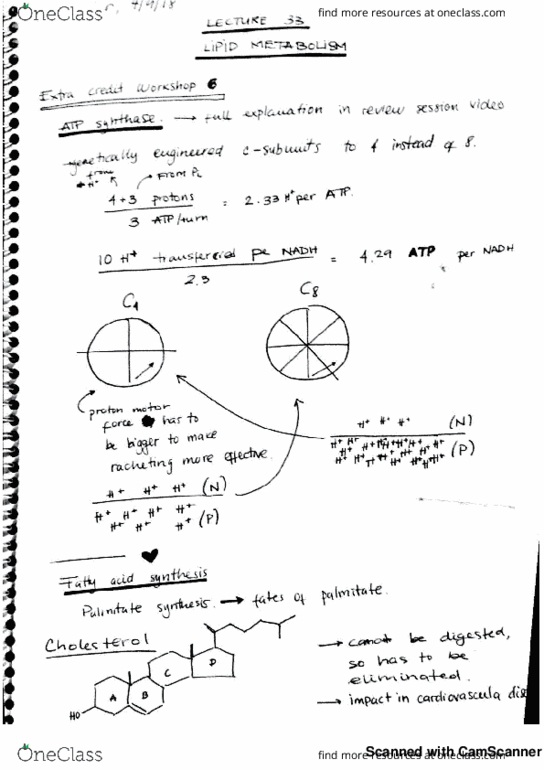 OneClass
find more resources at oneclass.com
4/9/18
LECTURE 33
LIPID METABOLISM
Extra credit Workshop 6
ATP synthase. → full explanation in review session video
genetically engineered c-subunits to 4 instead of 8.
from H+
From Pi
4+3 protons
3 ATP/turn
= 2.33 H+ per ATP.
10 H+ transferred pe NADH
2.3
= 4.29 ATP per NADH
C4
C8
proton motor
force has to
be bigger to make
racheting more effective.
H+ H+ H+ (N)
H+ H+ H+ H+
H+ H+ H+ (P)
H+ H+ H+ (N)
(P)
Fatty acid synthesis
Palmitate synthesis. → fates of palmitate.
Cholesterol
A B C D
HO
→ cannot be digested,
so has to be
eliminated.
→ impact in cardiovascula
OneClass
find more resources at oneclass.com
Scanned with CamScanner